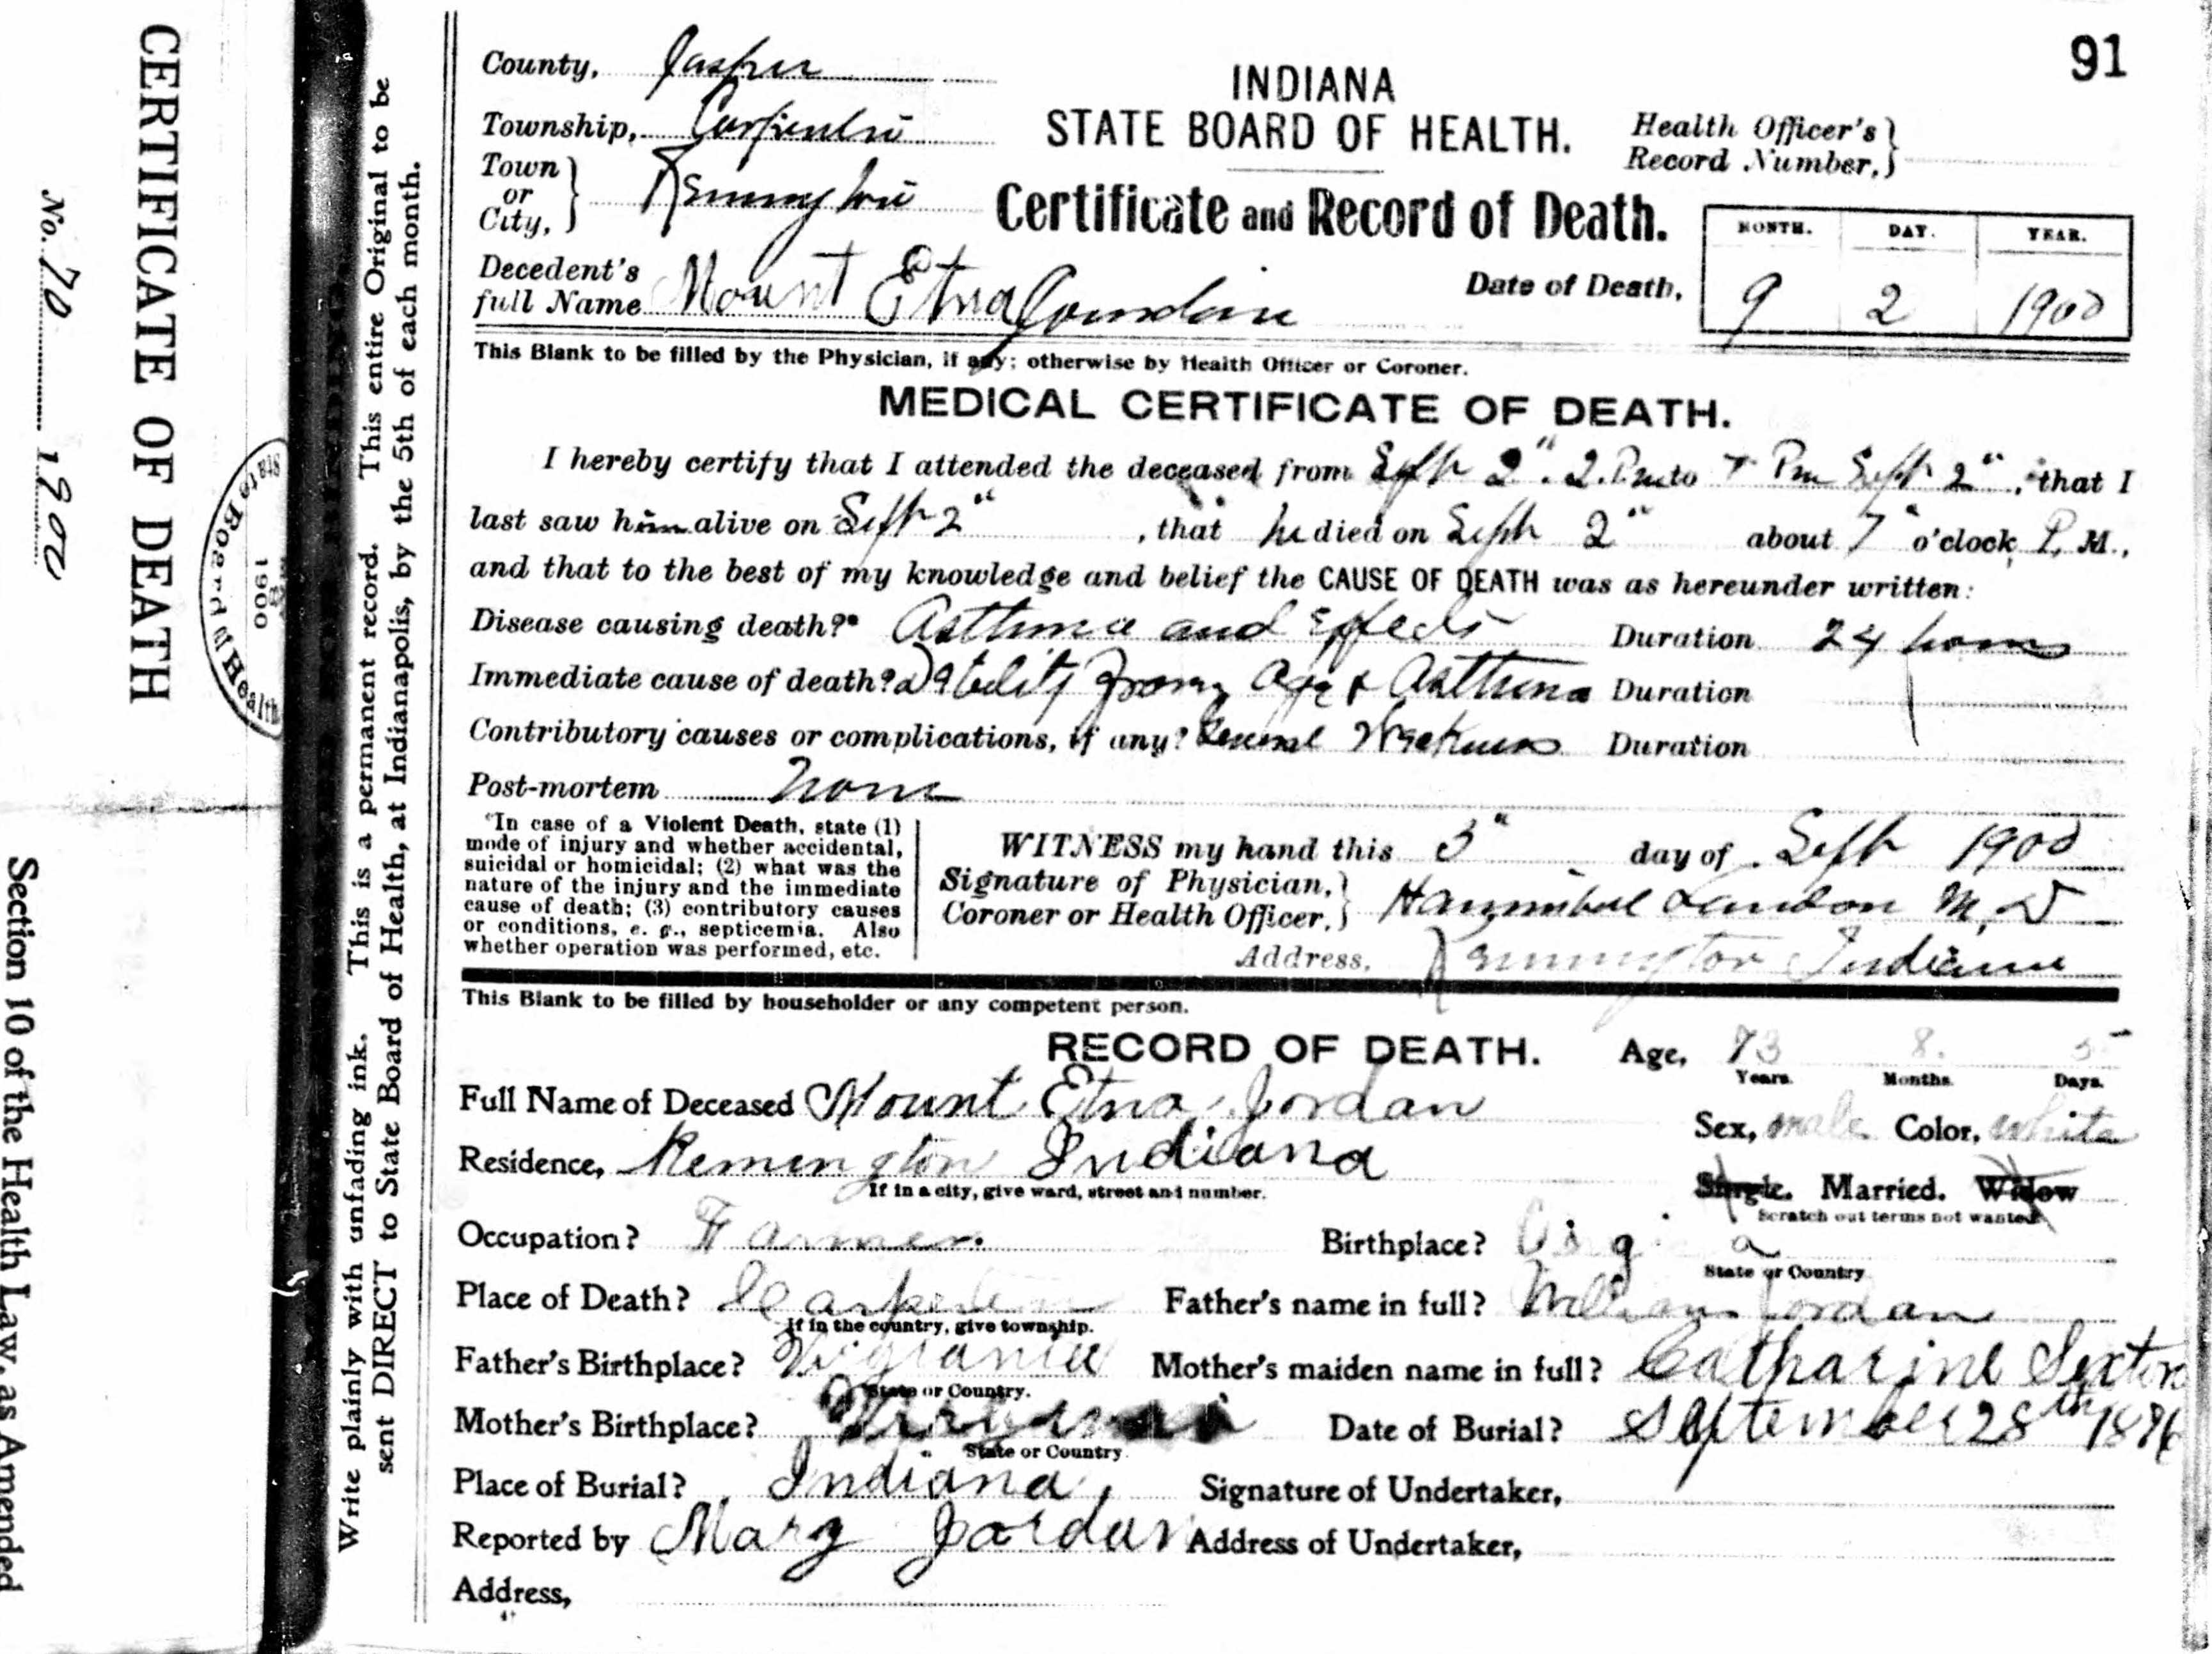 91
County, Jasper
Township, Carpenter
Town or City, } Remington
INDIANA
STATE BOARD OF HEALTH.
Health Officer's Record Number, }
Certificate and Record of Death.
Decedent's full Name Mount Etna Jourdan
Date of Death,
MONTH. DAY. YEAR.
9 2 1900
This Blank to be filled by the Physician, if any; otherwise by Health Officer or Coroner.
MEDICAL CERTIFICATE OF DEATH.
I hereby certify that I attended the deceased from Sept 2" . 2. P.m to 7 Pm Sept 2", that I
last saw him alive on Sept 2", that he died on Sept 2" about 7 o'clock, P. M.,
and that to the best of my knowledge and belief the CAUSE OF DEATH was as hereunder written:
Disease causing death?* Asthma and Effects Duration 24 hours
Immediate cause of death? Debility from Age & Asthma Duration
Contributory causes or complications, if any? General Weakness Duration
Post-mortem none
*In case of a Violent Death, state (1)
mode of injury and whether accidental,
suicidal or homicidal; (2) what was the
nature of the injury and the immediate
cause of death; (3) contributory causes
or conditions, e. g., septicemia. Also
whether operation was performed, etc.
WITNESS my hand this 3" day of Sept 1900
Signature of Physician, Coroner or Health Officer, } Hannibal Landon M, D
Address, Remmington Indiana
This Blank to be filled by householder or any competent person.
RECORD OF DEATH.
Age, 73 Years. 8. Months. 5 Days.
Full Name of Deceased Mount Etna Jordan
Sex, male Color, white
Residence, Remington Indiana
If in a city, give ward, street and number.
Single. Married. Widow
Scratch out terms not wanted.
Occupation? Farmer.
Birthplace?
State or Country
Place of Death? Carpenter
If in the country, give township.
Father's name in full? William Jordan
Father's Birthplace? Virgiania
State or Country.
Mother's maiden name in full? Catharine Sexton
Mother's Birthplace?
State or Country.
Date of Burial? September 28th 1896
Place of Burial? Indiana,
Signature of Undertaker,
Reported by Mary Jordan
Address of Undertaker,
Address,
Write plainly with unfading ink. This is a permanent record. This entire Original to be
sent DIRECT to State Board of Health, at Indianapolis, by the 5th of each month.
State Board of Health
1900
CERTIFICATE OF DEATH
No. 70 1900
Section 10 of the Health Law, as Amended